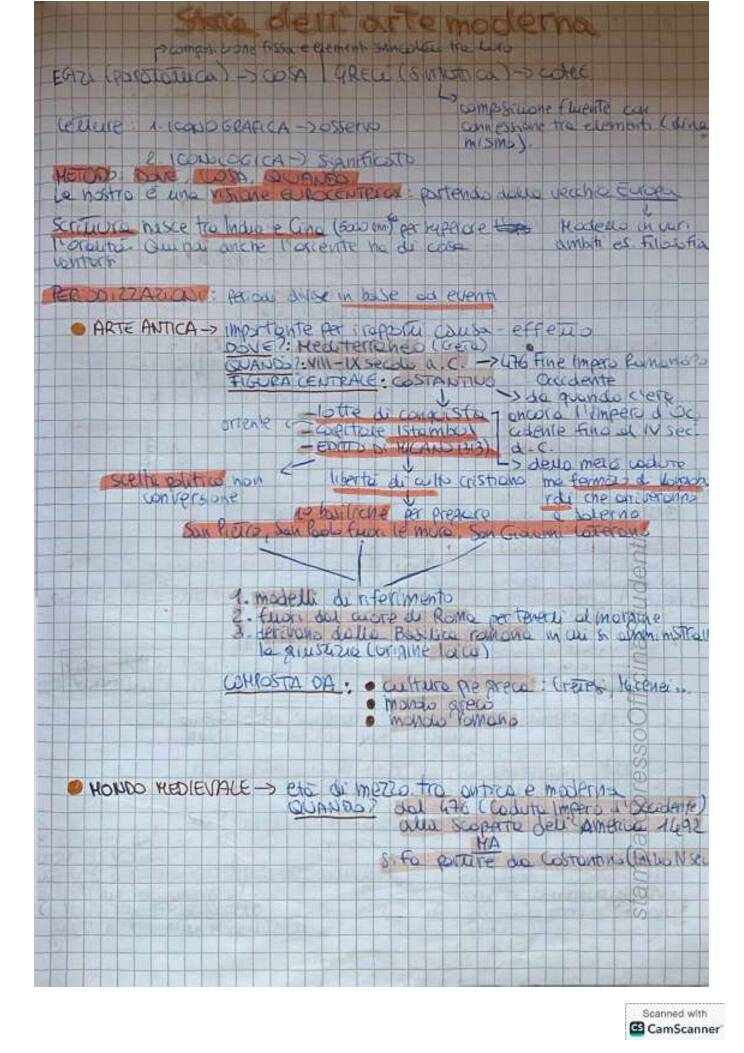 Storia dell'arte moderna
↱ composizione fissa e elementi svincolati tra loro
EGIZI (paratattica) → COSA | GRECI (sintattica) → come
↳ composizione fluente con
connessione tra elementi (dina
mismo).
Letture: 1. ICONOGRAFICA → osservo
2. ICONOLOGICA → significato
METODO: DOVE, COSA, QUANDO
La nostra è una visione EUROCENTRICA: partendo dalla vecchia Europa
↓
Scrittura nasce tra India e Cina per superare
Modello in vari
l'oralità Quindi anche l'oriente ha di cosa
ambiti es. filosofia
vantarsi
PERIODIZZAZIONI: periodi divise in base ad eventi
• ARTE ANTICA → importante per i rapporti causa-effetto
DOVE?: Mediterraneo (Creta)
QUANDO?: VIII-IX secolo a.C. → 476 fine Impero Romano
Occidente
FIGURA CENTRALE: COSTANTINO
↳ da quando c'era
oriente
- lotte di conquista
ancora l'Impero d'Oc
- capitale Istambul
cidente fino al IV sec.
- EDITTO DI MILANO (313)
d.C.
↳ della metà cadute
scelta politica non
libertà di culto cristiano
ma fermato di Longob
conversione
rdi che arriveranno
1e basiliche per pregare
a Salerno
San Pietro, San Paolo fuori le mura, San Giovanni Laterano
1. modelli di riferimento
2. fuori dal cuore di Roma per tenerli al margine
3. derivano dalla Basilica romana in cui si amministrava
la giustizia (origine laica)
COMPOSTA DA: • cultura pre greca: Cretesi, Micenei...
• mondo greco
• mondo romano
• MONDO MEDIEVALE → età di mezzo tra antica e moderna
QUANDO? dal 476 (Caduta Impero d'Occidente)
alla scoperta dell'America 1492
MA
si fa partire da Costantino IV sec
stampa presso Officina Studenti
Scanned with
CS CamScanner